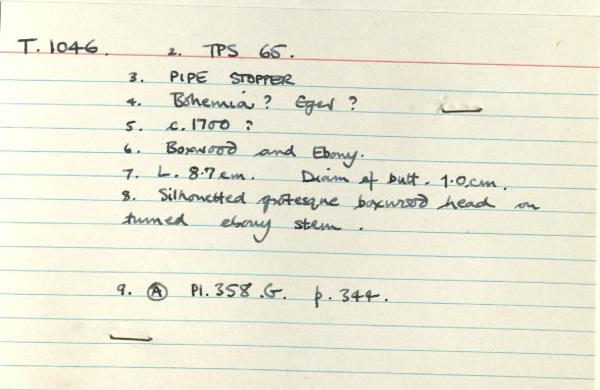 T.1046. 2. TPS 65.
3. PIPE STOPPER
4. Bohemia? Eger?
5. c.1700?
6. Boxwood and Ebony.
7. L. 8.7cm. Diam of butt. 1.0cm.
8. Silhouetted grotesque boxwood head on
turned ebony stem.
9. Ⓐ Pl. 358.G. p. 344.